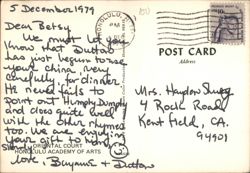 5 December 1979
Dear Betsy
We must let you
know that Dutton
has just begun to use
your china, very
carefully, for dinner.
He never fails to
point out Humpty Dumpty
and does quite well
with the other rhymes
too. We are enjoying
your gift to
love, + Dutton
ORIENTAL COURT
HONOLULU ACADEMY OF ARTS
HONOLULU
PM
POST CARD
Address
Mrs. Hayden
4 Rock Road
Kentfield, CA.
94901